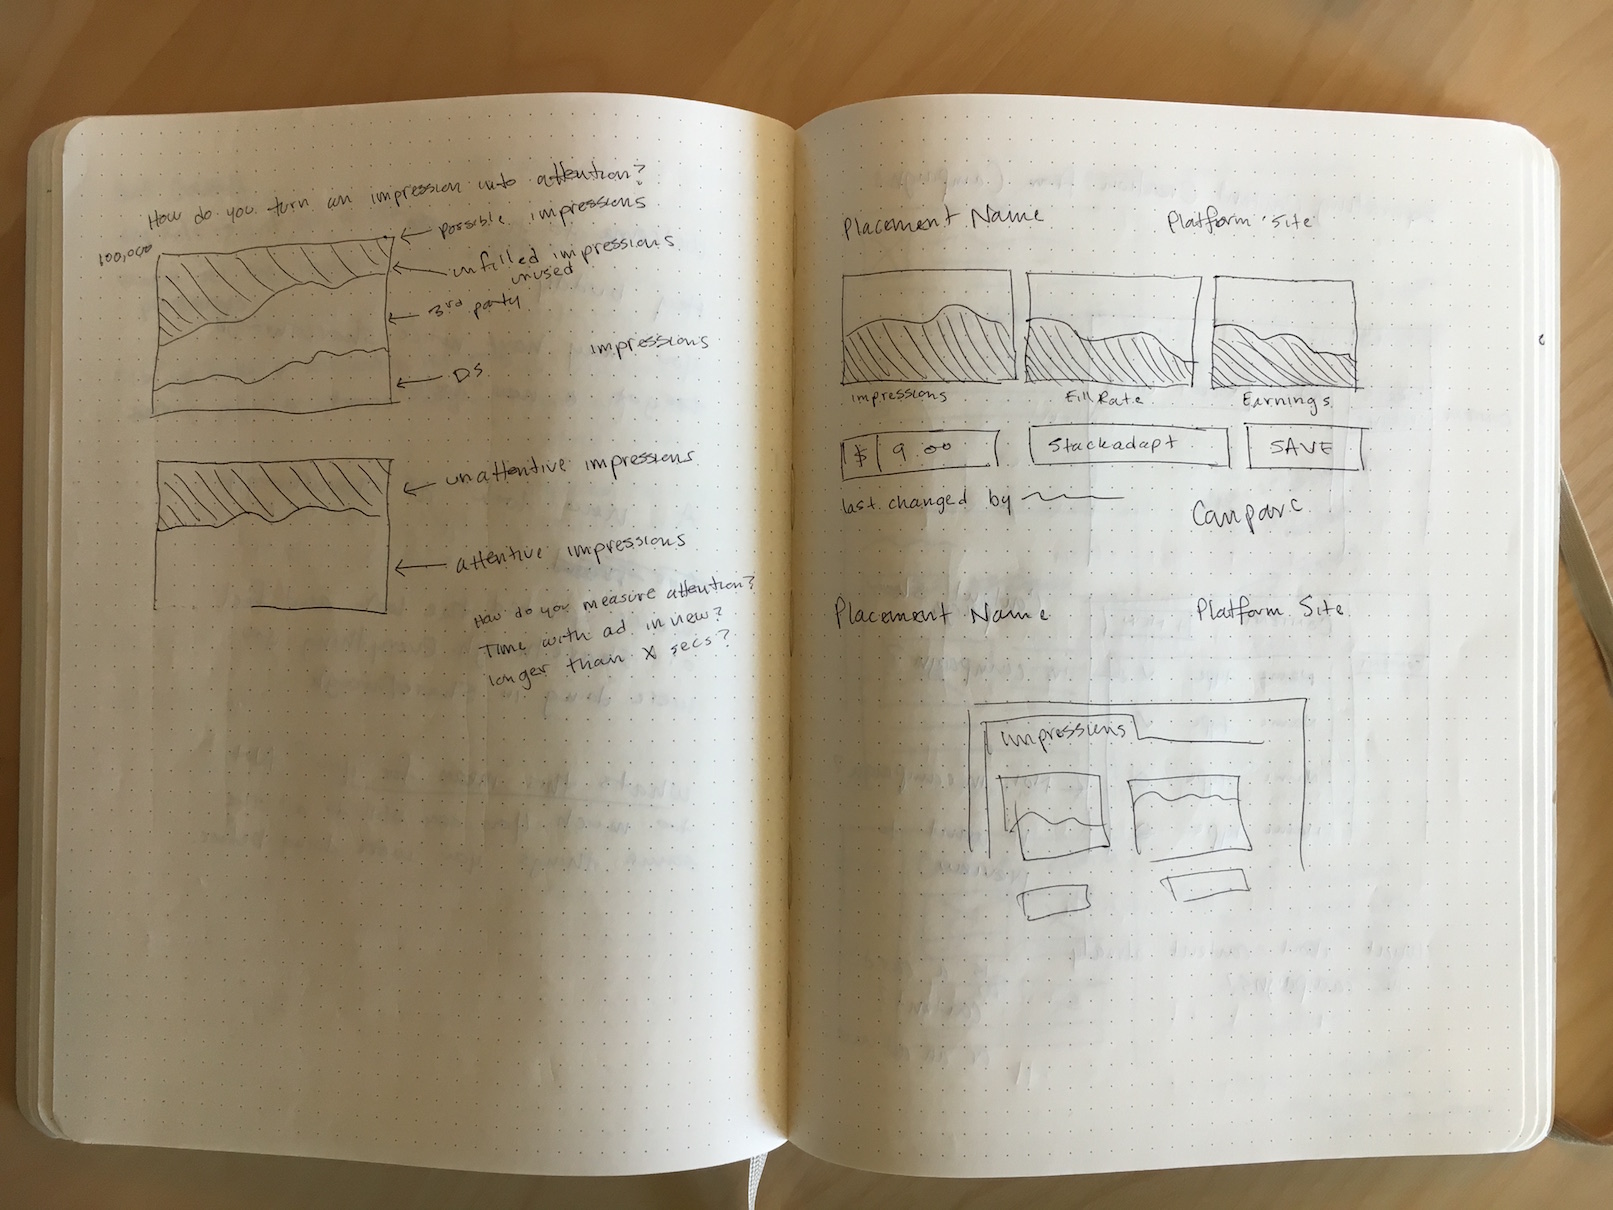 How do you turn an impression into attention?
100,000
possible impressions
unfilled impressions
unused
3rd party
impressions
DS
unattentive impressions
attentive impressions
How do you measure attention?
Time with ad in view?
longer than X secs?
Placement Name
Platform Site
impressions
Fill Rate
Earnings
$ 9.00
Stackadapt
SAVE
last changed by
Compare
Placement Name
Platform Site
impressions